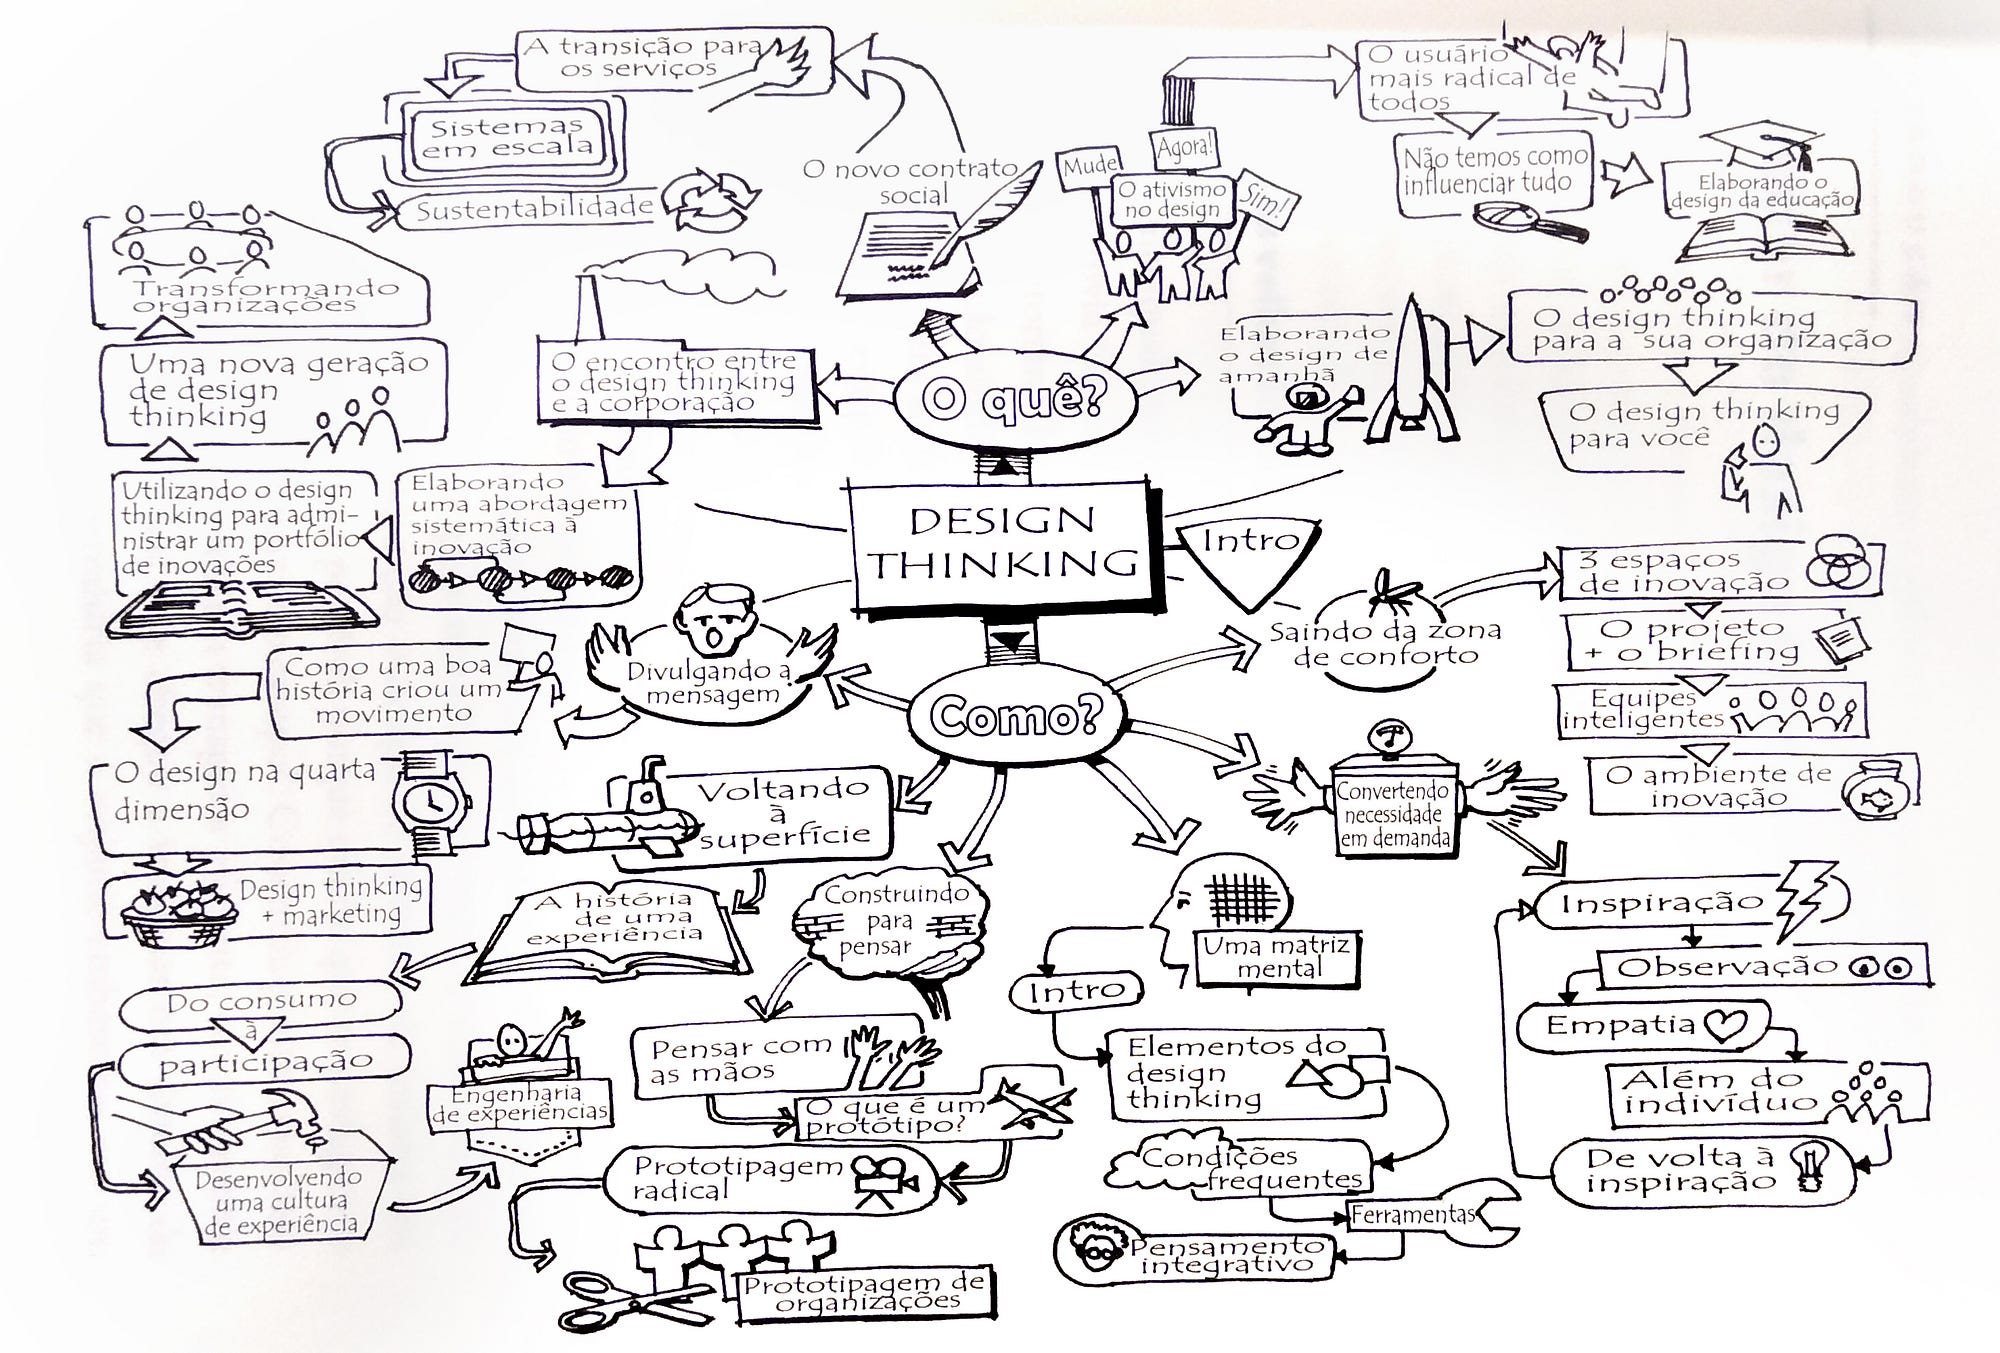 DESIGN
THINKING
Intro
O quê?
O encontro entre
o design thinking
e a corporação
Elaborando
uma abordagem
sistemática à
inovação
Utilizando o design
thinking para admi-
nistrar um portfólio
de inovações
Uma nova geração
de design
thinking
Transformando
organizações
O novo contrato
social
A transição para
os serviços
Sistemas
em escala
Sustentabilidade
Mude!
Agora!
Sim!
O ativismo
no design
O usuário
mais radical de
todos
Não temos como
influenciar tudo
Elaborando o
design da educação
Elaborando
o design de
amanhã
O design thinking
para a sua organização
O design thinking
para você
Como?
Saindo da zona
de conforto
3 espaços
de inovação
O projeto
+ o briefing
Equipes
inteligentes
O ambiente de
inovação
?
Convertendo
necessidade
em demanda
Inspiração
Observação
Empatia
Além do
indivíduo
De volta à
inspiração
Uma matriz
mental
Intro
Elementos do
design
thinking
Condições
frequentes
Ferramentas
Pensamento
integrativo
Construindo
para
pensar
Pensar com
as mãos
O que é um
protótipo?
Prototipagem
radical
Prototipagem de
organizações
Voltando
à
superfície
A história
de uma
experiência
Do consumo
à
participação
Desenvolvendo
uma cultura
de experiência
Engenharia
de experiências
Divulgando a
mensagem
Como uma boa
história criou um
movimento
O design na quarta
dimensão
Design thinking
+ marketing